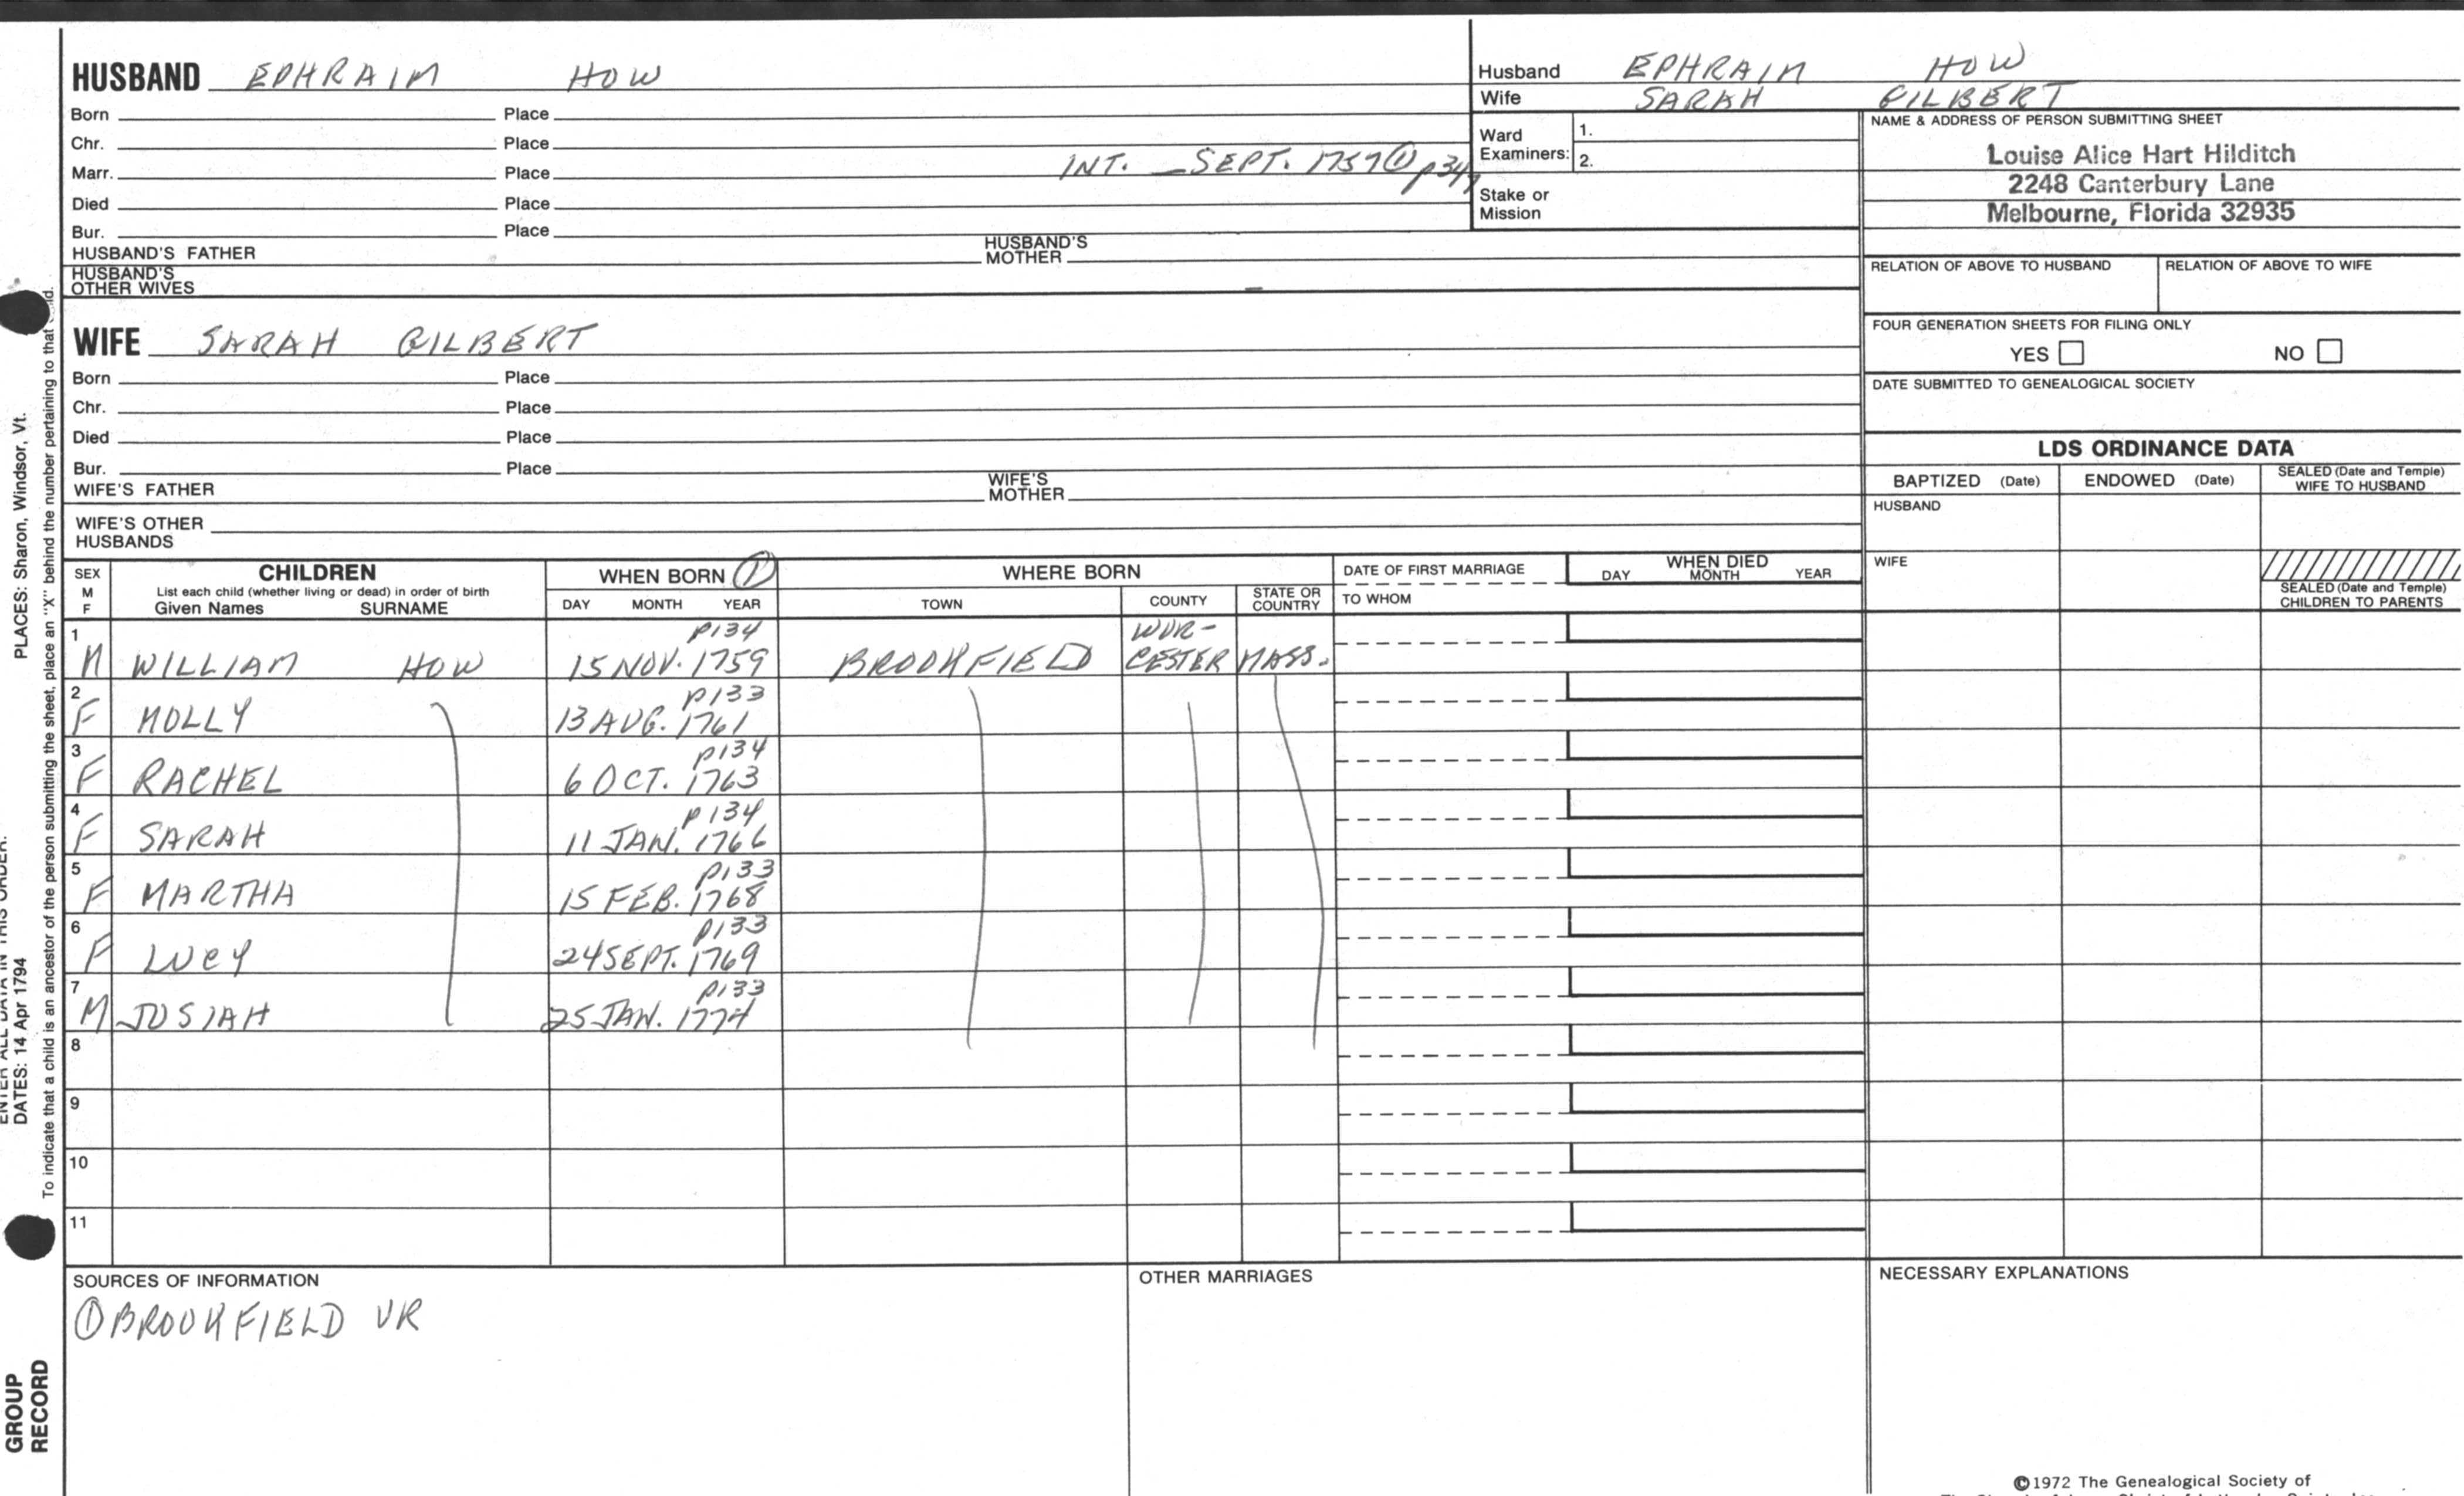 HUSBAND EPHRAIM HOW
Born Place
Chr. Place
Marr. Place INT. _ SEPT. 1757 ① p347
Died Place
Bur. Place
HUSBAND'S FATHER HUSBAND'S MOTHER
HUSBAND'S OTHER WIVES
Husband EPHRAIM HOW
Wife SARAH GILBERT
Ward Examiners: 1.
2.
Stake or Mission
NAME & ADDRESS OF PERSON SUBMITTING SHEET
Louise Alice Hart Hilditch
2248 Canterbury Lane
Melbourne, Florida 32935
RELATION OF ABOVE TO HUSBAND RELATION OF ABOVE TO WIFE
FOUR GENERATION SHEETS FOR FILING ONLY
YES NO
DATE SUBMITTED TO GENEALOGICAL SOCIETY
WIFE SARAH GILBERT
Born Place
Chr. Place
Died Place
Bur. Place
WIFE'S FATHER WIFE'S MOTHER
WIFE'S OTHER HUSBANDS
LDS ORDINANCE DATA
BAPTIZED (Date) ENDOWED (Date) SEALED (Date and Temple) WIFE TO HUSBAND
HUSBAND
WIFE
SEALED (Date and Temple) CHILDREN TO PARENTS
SEX M F
CHILDREN
List each child (whether living or dead) in order of birth
Given Names SURNAME
WHEN BORN ①
DAY MONTH YEAR
WHERE BORN
TOWN COUNTY STATE OR COUNTRY
DATE OF FIRST MARRIAGE
TO WHOM
WHEN DIED
DAY MONTH YEAR
1 p134 WOR-
M WILLIAM HOW 15 NOV. 1759 BROOKFIELD CESTER MASS.
2 p133
F MOLLY 13 AUG. 1761
3 p134
F RACHEL 6 OCT. 1763
4 p134
F SARAH 11 JAN. 1766
5 p133
F MARTHA 15 FEB. 1768
6 p133
F LUCY 24 SEPT. 1769
7 p133
M JOSIAH 25 JAN. 1774
8
9
10
11
SOURCES OF INFORMATION
① BROOKFIELD VR
OTHER MARRIAGES
NECESSARY EXPLANATIONS
©1972 The Genealogical Society of
ENTER ALL DATA IN THIS ORDER:
DATES: 14 Apr 1794
PLACES: Sharon, Windsor, Vt.
To indicate that a child is an ancestor of the person submitting the sheet, place an "X" behind the number pertaining to that child.
GROUP
RECORD